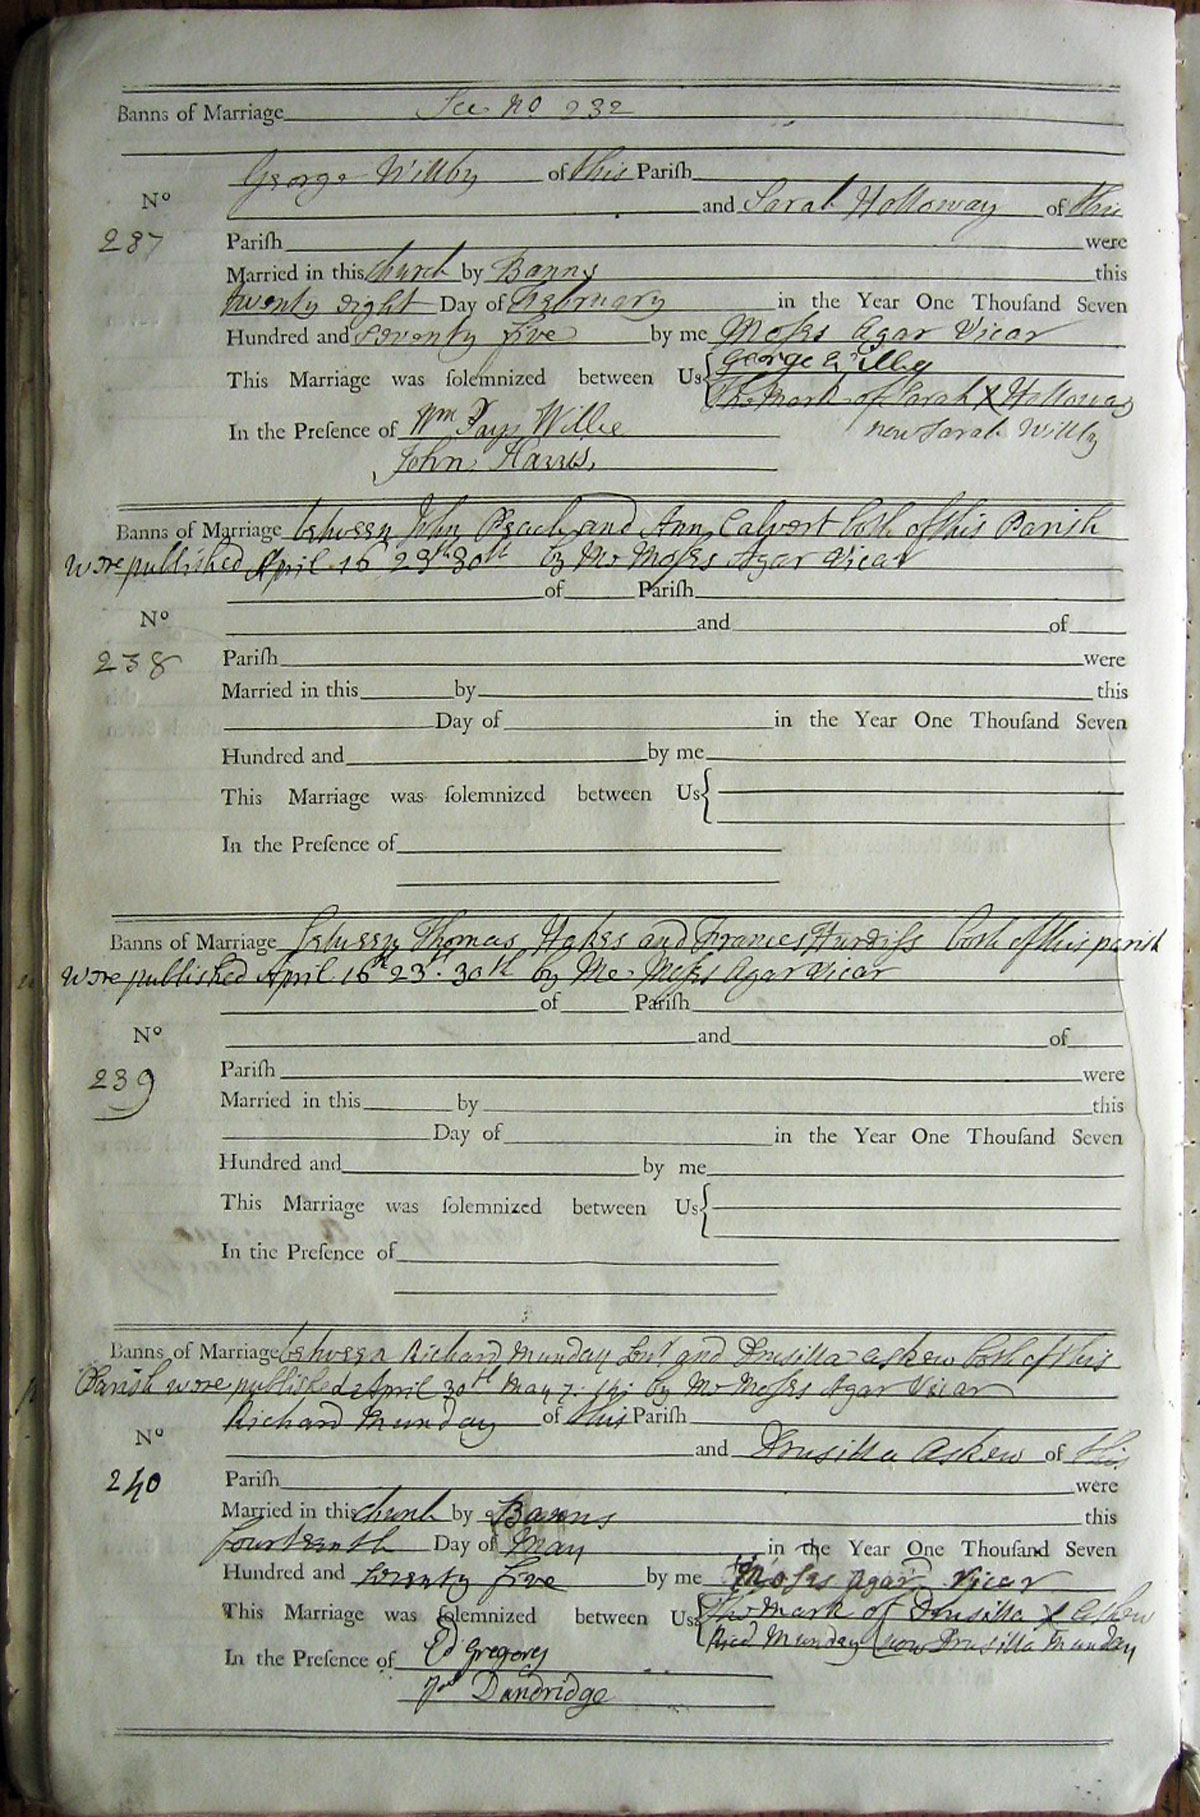 Banns of Marriage See No 232
George Willby of this Pariſh
No and Sarah Holloway of this
237 Pariſh were
Married in this Church by Banns this
twenty eight Day of February in the Year One Thouſand Seven
Hundred and seventy five by me Moses Agar Vicar
This Marriage was ſolemnized between Us George Willby
The Mark of Sarah X Holloway
now Sarah Willby
In the Preſence of Wm Willie
John Harris
Banns of Marriage between John Peach and Ann Calvert both of this Parish
were published April 16 23th 30th by Me Moses Agar Vicar
of Pariſh
No and of
238 Pariſh were
Married in this by this
Day of in the Year One Thouſand Seven
Hundred and by me
This Marriage was ſolemnized between Us
In the Preſence of
Banns of Marriage between Thomas Hakes and Frances both of this parish
were published April 16th 23d 30th by Me Moses Agar Vicar
of Pariſh
No and of
239 Pariſh were
Married in this by this
Day of in the Year One Thouſand Seven
Hundred and by me
This Marriage was ſolemnized between Us
In the Preſence of
Banns of Marriage between Richard Munday and Drusilla Askew both of this
Parish were published April 30th May 7 14 by Me Moses Agar Vicar
Richard Munday of this Pariſh
No and Drusilla Askew of this
240 Pariſh were
Married in this Church by Banns this
fourteenth Day of May in the Year One Thouſand Seven
Hundred and seventy five by me Moses Agar Vicar
This Marriage was ſolemnized between Us The Mark of Drusilla X Askew
Ricd Munday now Drusilla Munday
In the Preſence of Ed Gregory
Dandridge